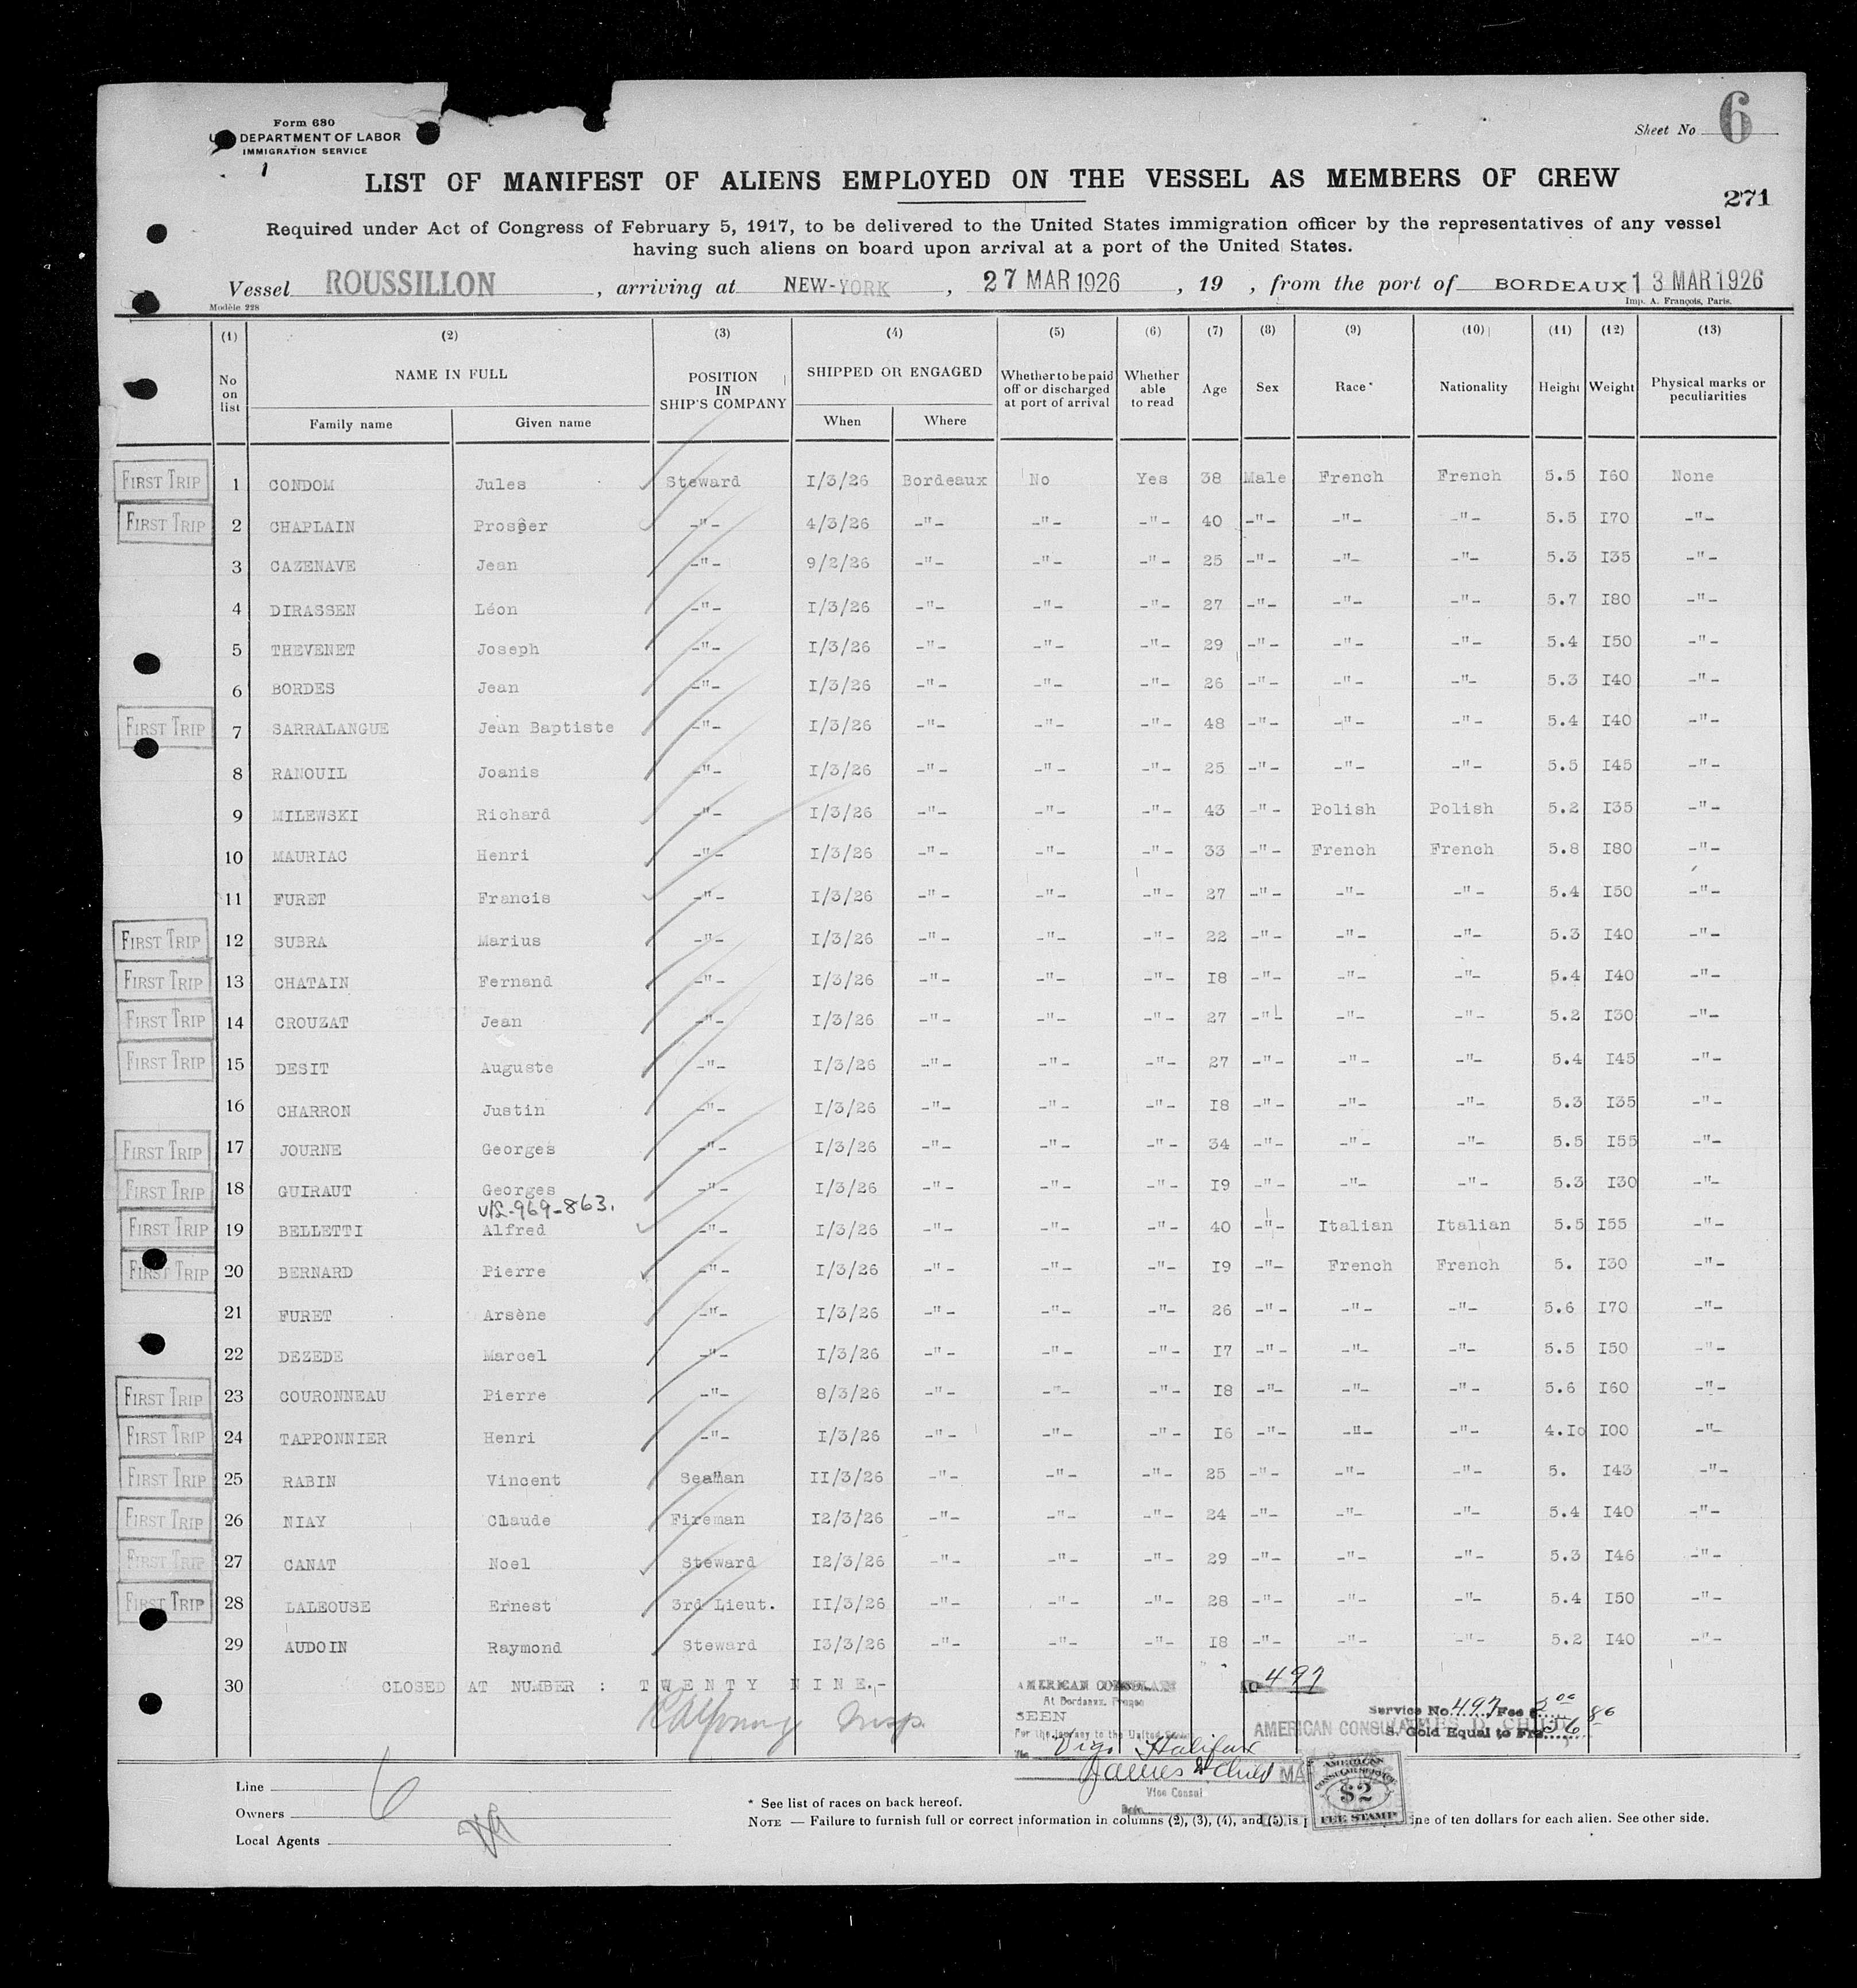 Form 680
DEPARTMENT OF LABOR
IMMIGRATION SERVICE
Sheet No 6
LIST OF MANIFEST OF ALIENS EMPLOYED ON THE VESSEL AS MEMBERS OF CREW
271
Required under Act of Congress of February 5, 1917, to be delivered to the United States immigration officer by the representatives of any vessel
having such aliens on board upon arrival at a port of the United States.
Vessel ROUSSILLON, arriving at NEW-YORK, 27 MAR 1926, 19 , from the port of BORDEAUX 13 MAR 1926
Modèle 228 Imp. A. François, Paris.
(1) (2) (3) (4) (5) (6) (7) (8) (9) (10) (11) (12) (13)
No on list NAME IN FULL POSITION IN SHIP'S COMPANY SHIPPED OR ENGAGED Whether to be paid off or discharged at port of arrival Whether able to read Age Sex Race* Nationality Height Weight Physical marks or peculiarities
Family name Given name When Where
FIRST TRIP 1 CONDOM Jules Steward I/3/26 Bordeaux No Yes 38 Male French French 5.5 I60 None
FIRST TRIP 2 CHAPLAIN Prosper -"- 4/3/26 -"- -"- -"- 40 -"- -"- -"- 5.5 I70 -"-
3 CAZENAVE Jean -"- 9/2/26 -"- -"- -"- 25 -"- -"- -"- 5.3 I35 -"-
4 DIRASSEN Léon -"- I/3/26 -"- -"- -"- 27 -"- -"- -"- 5.7 I80 -"-
5 THEVENET Joseph -"- I/3/26 -"- -"- -"- 29 -"- -"- -"- 5.4 I50 -"-
6 BORDES Jean -"- I/3/26 -"- -"- -"- 26 -"- -"- -"- 5.3 I40 -"-
FIRST TRIP 7 SARRALANGUE Jean Baptiste -"- I/3/26 -"- -"- -"- 48 -"- -"- -"- 5.4 I40 -"-
8 RANOUIL Joanis -"- I/3/26 -"- -"- -"- 25 -"- -"- -"- 5.5 I45 -"-
9 MILEWSKI Richard -"- I/3/26 -"- -"- -"- 43 -"- Polish Polish 5.2 I35 -"-
10 MAURIAC Henri -"- I/3/26 -"- -"- -"- 33 -"- French French 5.8 I80 -"-
11 FURET Francis -"- I/3/26 -"- -"- -"- 27 -"- -"- -"- 5.4 I50 -"-
FIRST TRIP 12 SUBRA Marius -"- I/3/26 -"- -"- -"- 22 -"- -"- -"- 5.3 I40 -"-
FIRST TRIP 13 CHATAIN Fernand -"- I/3/26 -"- -"- -"- I8 -"- -"- -"- 5.4 I40 -"-
FIRST TRIP 14 CROUZAT Jean -"- I/3/26 -"- -"- -"- 27 -"- -"- -"- 5.2 I30 -"-
FIRST TRIP 15 DESIT Auguste -"- I/3/26 -"- -"- -"- 27 -"- -"- -"- 5.4 I45 -"-
16 CHARRON Justin -"- I/3/26 -"- -"- -"- I8 -"- -"- -"- 5.3 I35 -"-
FIRST TRIP 17 JOURNE Georges -"- I/3/26 -"- -"- -"- 34 -"- -"- -"- 5.5 I55 -"-
FIRST TRIP 18 GUIRAUT Georges -"- I/3/26 -"- -"- -"- I9 -"- -"- -"- 5.3 I30 -"-
969-863.
FIRST TRIP 19 BELLETTI Alfred -"- I/3/26 -"- -"- -"- 40 -"- Italian Italian 5.5 I55 -"-
FIRST TRIP 20 BERNARD Pierre -"- I/3/26 -"- -"- -"- I9 -"- French French 5. I30 -"-
21 FURET Arsène -"- I/3/26 -"- -"- -"- 26 -"- -"- -"- 5.6 I70 -"-
22 DEZEDE Marcel -"- I/3/26 -"- -"- -"- I7 -"- -"- -"- 5.5 I50 -"-
FIRST TRIP 23 COURONNEAU Pierre -"- 8/3/26 -"- -"- -"- I8 -"- -"- -"- 5.6 I60 -"-
FIRST TRIP 24 TAPPONNIER Henri -"- I/3/26 -"- -"- -"- I6 -"- -"- -"- 4.Io I00 -"-
FIRST TRIP 25 RABIN Vincent Seaman II/3/26 -"- -"- -"- 25 -"- -"- -"- 5. I43 -"-
FIRST TRIP 26 NIAY Claude Fireman I2/3/26 -"- -"- -"- 24 -"- -"- -"- 5.4 I40 -"-
FIRST TRIP 27 CANAT Noel Steward I2/3/26 -"- -"- -"- 29 -"- -"- -"- 5.3 I46 -"-
FIRST TRIP 28 LALEOUSE Ernest 3rd Lieut. II/3/26 -"- -"- -"- 28 -"- -"- -"- 5.4 I50 -"-
29 AUDOIN Raymond Steward I3/3/26 -"- -"- -"- I8 -"- -"- -"- 5.2 I40 -"-
30 CLOSED AT NUMBER : TWENTY NINE.-
AMERICAN CONSULATE No 497
At Bordeaux, France
SEEN
For the journey to the United States
Via Vigo Halifax
James D Child
Vice Consul
Date
Service No. 497 Fee $ 2.00
AMERICAN CONSUL JAMES D. CHILD
S. Gold Equal to Frs. 56 80
AMERICAN CONSULAR SERVICE $2 FEE STAMP
Line 6
Owners
Local Agents
* See list of races on back hereof.
NOTE — Failure to furnish full or correct information in columns (2), (3), (4), and (5) is ine of ten dollars for each alien. See other side.